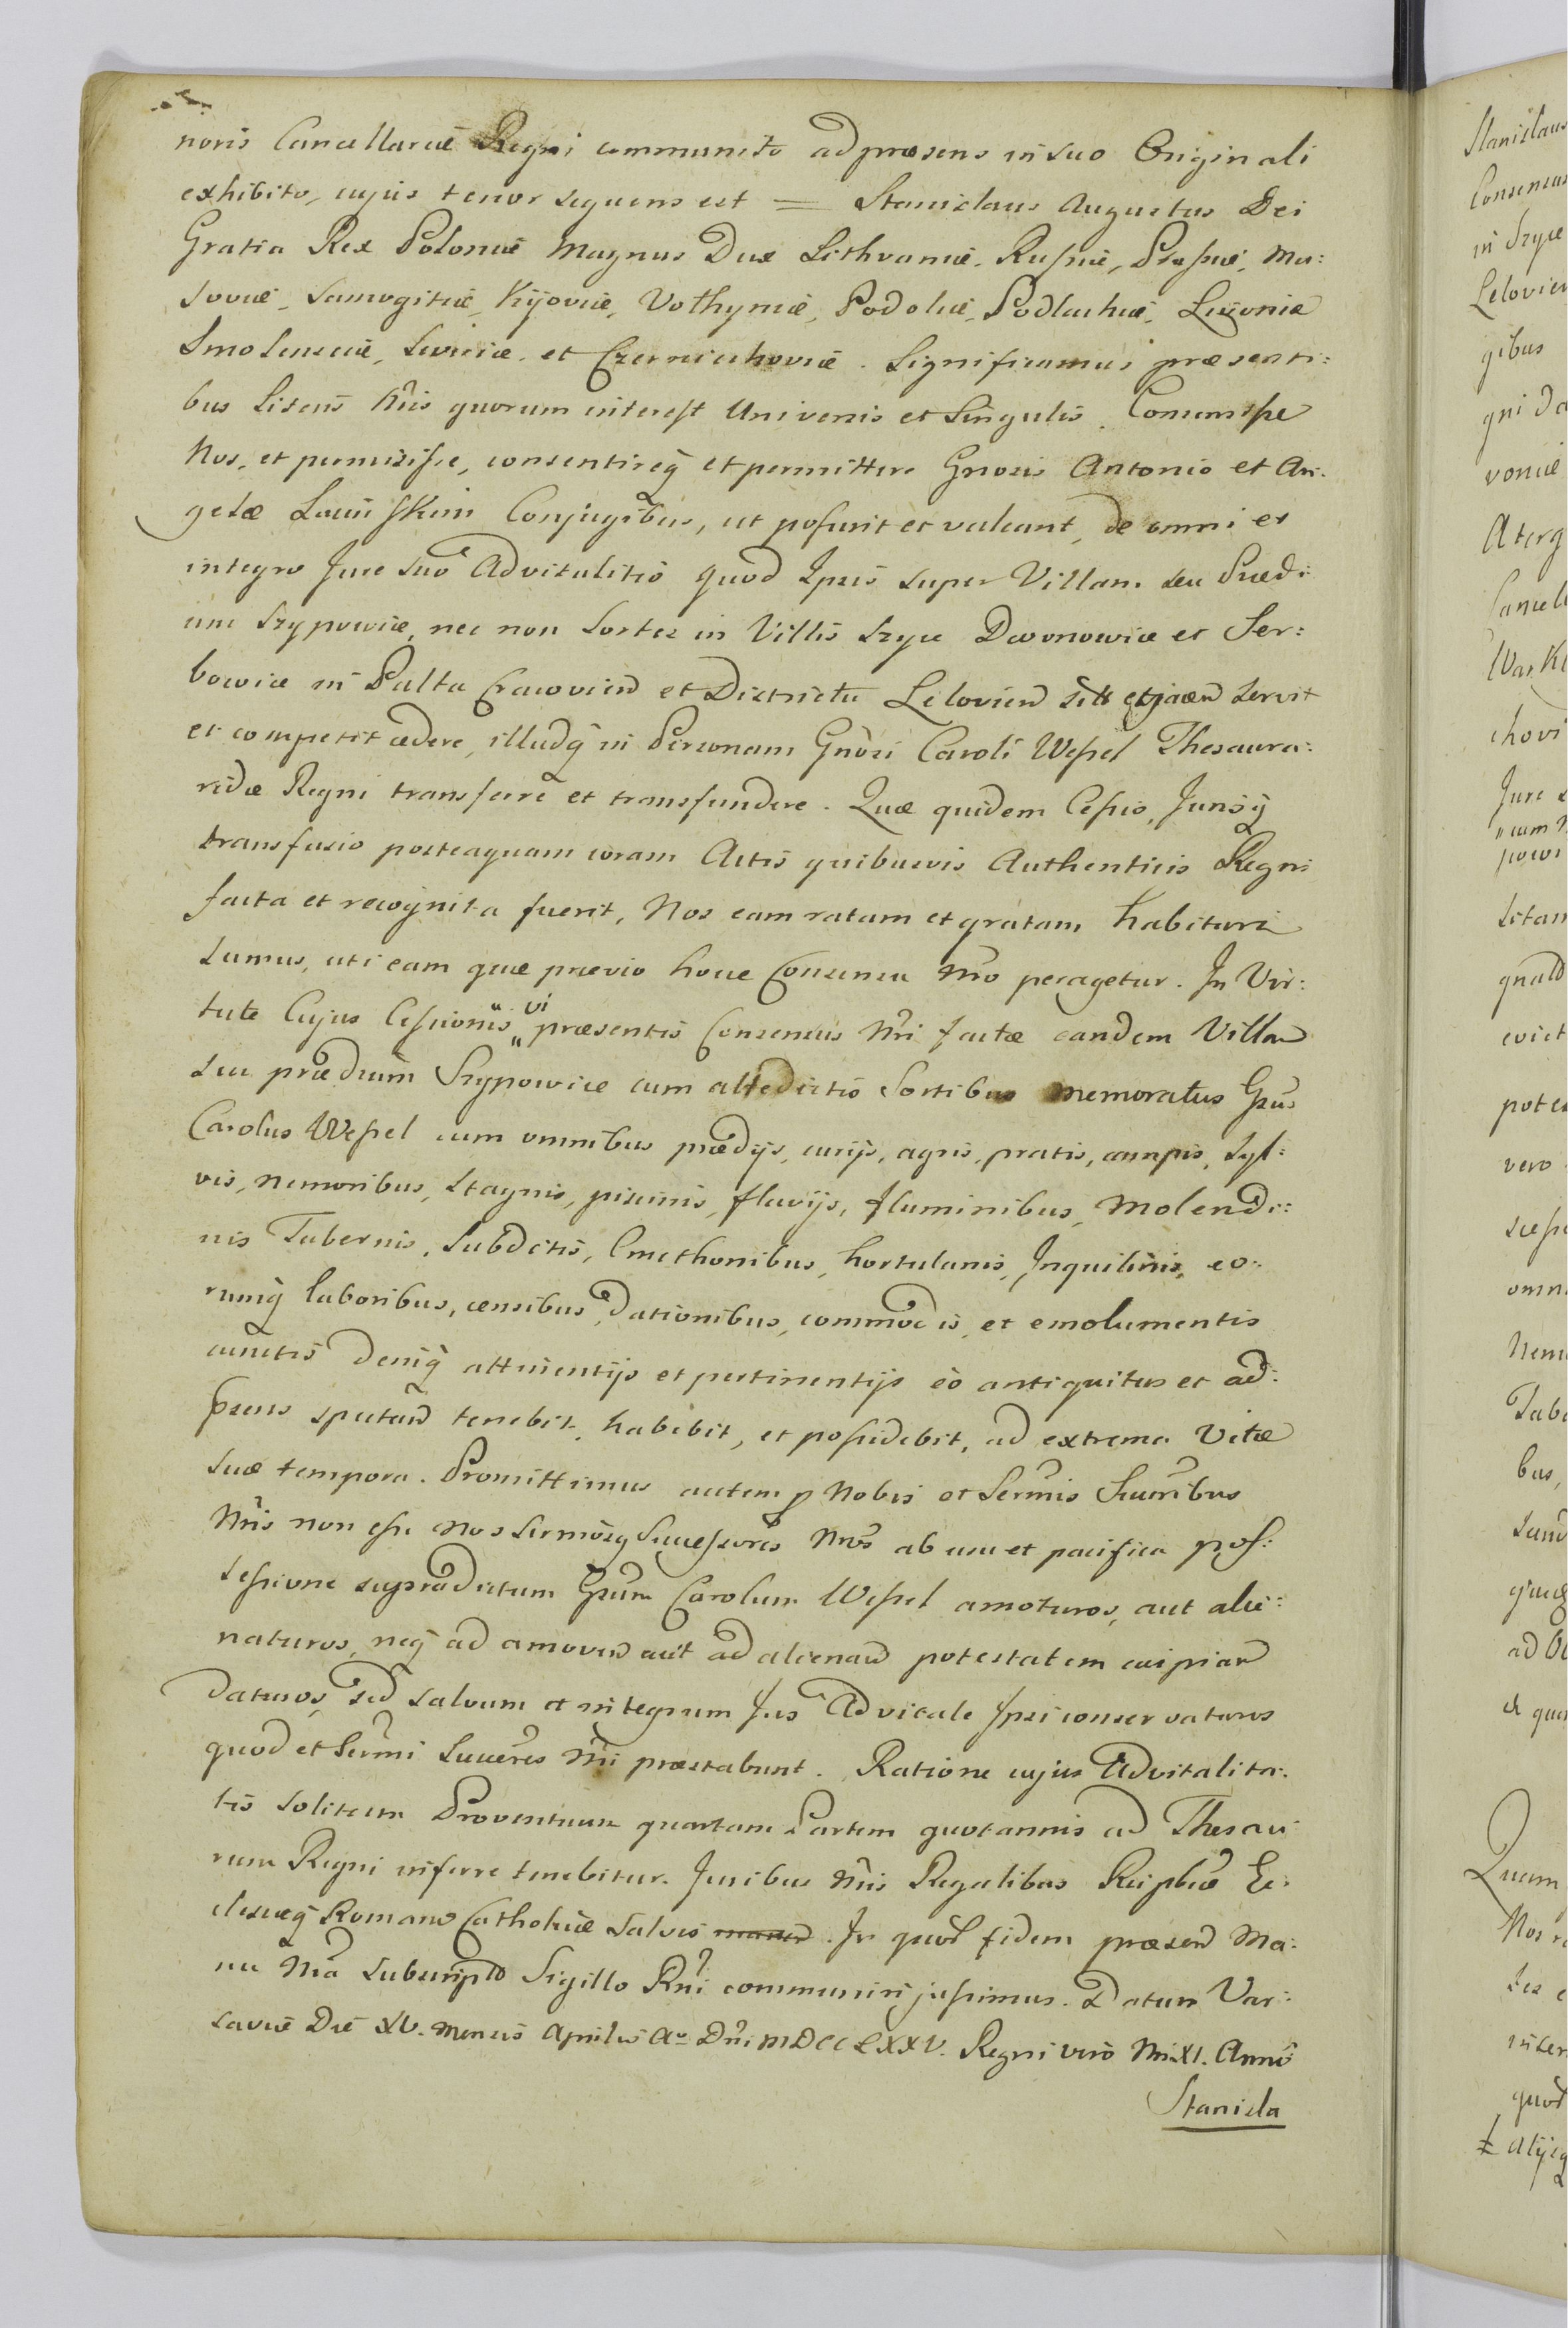 noris Cancellariæ Regni communito ad præsens in suo Originali
exhibito, cujus tenor sequens est = Stanislaus Augustus Dei
Gratia Rex Poloniæ Magnus Dux Lithvaniæ, Rußiæ, Prußiæ, Ma:
soviæ, Samogitiæ, Kijoviæ, Volhyniæ, Podoliæ, Podlachiæ, Livoniæ
Smolensciæ, Severiæ et Czerniechoviæ. Significamus præsenti:
bus Literis Nris quorum interest Universis et Singulis. Consensiße
Nos, et permisiße, consentireq et permittere Gnosis Antonio et An:
gelæ Conjugibus, ut poßint et valeant, de omni et
integro Jure suo Advitalitio quod Ipsis super Villam seu Prædi:
um Szypowice, nec non Sortes in Villis Szyce Dwonowice et Ser:
bowice in Pal̃tu Cracovien et Districtu Lelovien sitt et jacen servit
et competit cedere, illudq in Personam Gnosi Caroli Weßel Thesaura:
ridæ Regni transferre et transfundere. Quæ quidem Ceßio, Jurisq
transfusio posteaquam coram Actis quibusvis Authenticis Regni
facta et recognita fuerit, Nos eam ratam et gratam habituri
sumus, uti eam quæ prævio hocce Consensu Nro peragetur. In Vir:
tute Cujus Ceßionis " vi præsentis Consensus Nri factæ eandem Villam
seu prædium Szypowice cum attedictis Sortibus memoratus Gsus
Carolus Weßel cum omnibus prædijs, curijs, agris, pratis, campis, Syl:
vis, nemoribus, stagnis, piscinis, fluvijs, fluminibus, Molendi:
nis Tabernis, Subditis, Cmethonibus, hortulanis, Inquilinis, eo:
rumq laboribus, censibus, dationibus, commodis, et emolumentis
cunctis deniq attinentijs et pertinentijs eo antiquitus et ad:
psens spectan tenebit, habebit, et poßidebit, ad extrema Vitæ
suæ tempora. Promittimus autem p Nobis et Sermis Succribus
Nris non eße Nos Sermosq Succeßores Nros ab usu et pacifica pos:
seßione supradictum Gsum Carolum Weßel amoturos, aut alie:
naturos, neq ad amoven aut ad alienand potestatem cuipiam
daturos, sed salvum et integrum Jus Advitale Ipsi conservaturos
quod et Sermi Succeres Nri præstabunt. Ratione cujus Advitalita:
tis solitam Proventuum quartam Partem quotannis ad Thesau:
rum Regni inferre tenebitur. Juribus Nris Regalibus Reiplicæ Ec:
clesiæq Romano Catholicæ salvis manen. In quor fidem præsen Ma:
nu Nra subscript Sigillo Rni communiri jußimus. Datum Var:
saviæ Die XV. Mensis Aprilis Ao Dni MDCCLXXV. Regni vero Nri XI. Anno
Stanisla
Stanislaus
Consensus
in Szyce
Lelovien
gibus
gni da
voniæ
A terg
Cancell
War
chovi
Jure
"cum
powi
evict
pote
vero
omni
Nem
Tab
bus,
quæ
Quam
Nos r
inser
quor
alijsq